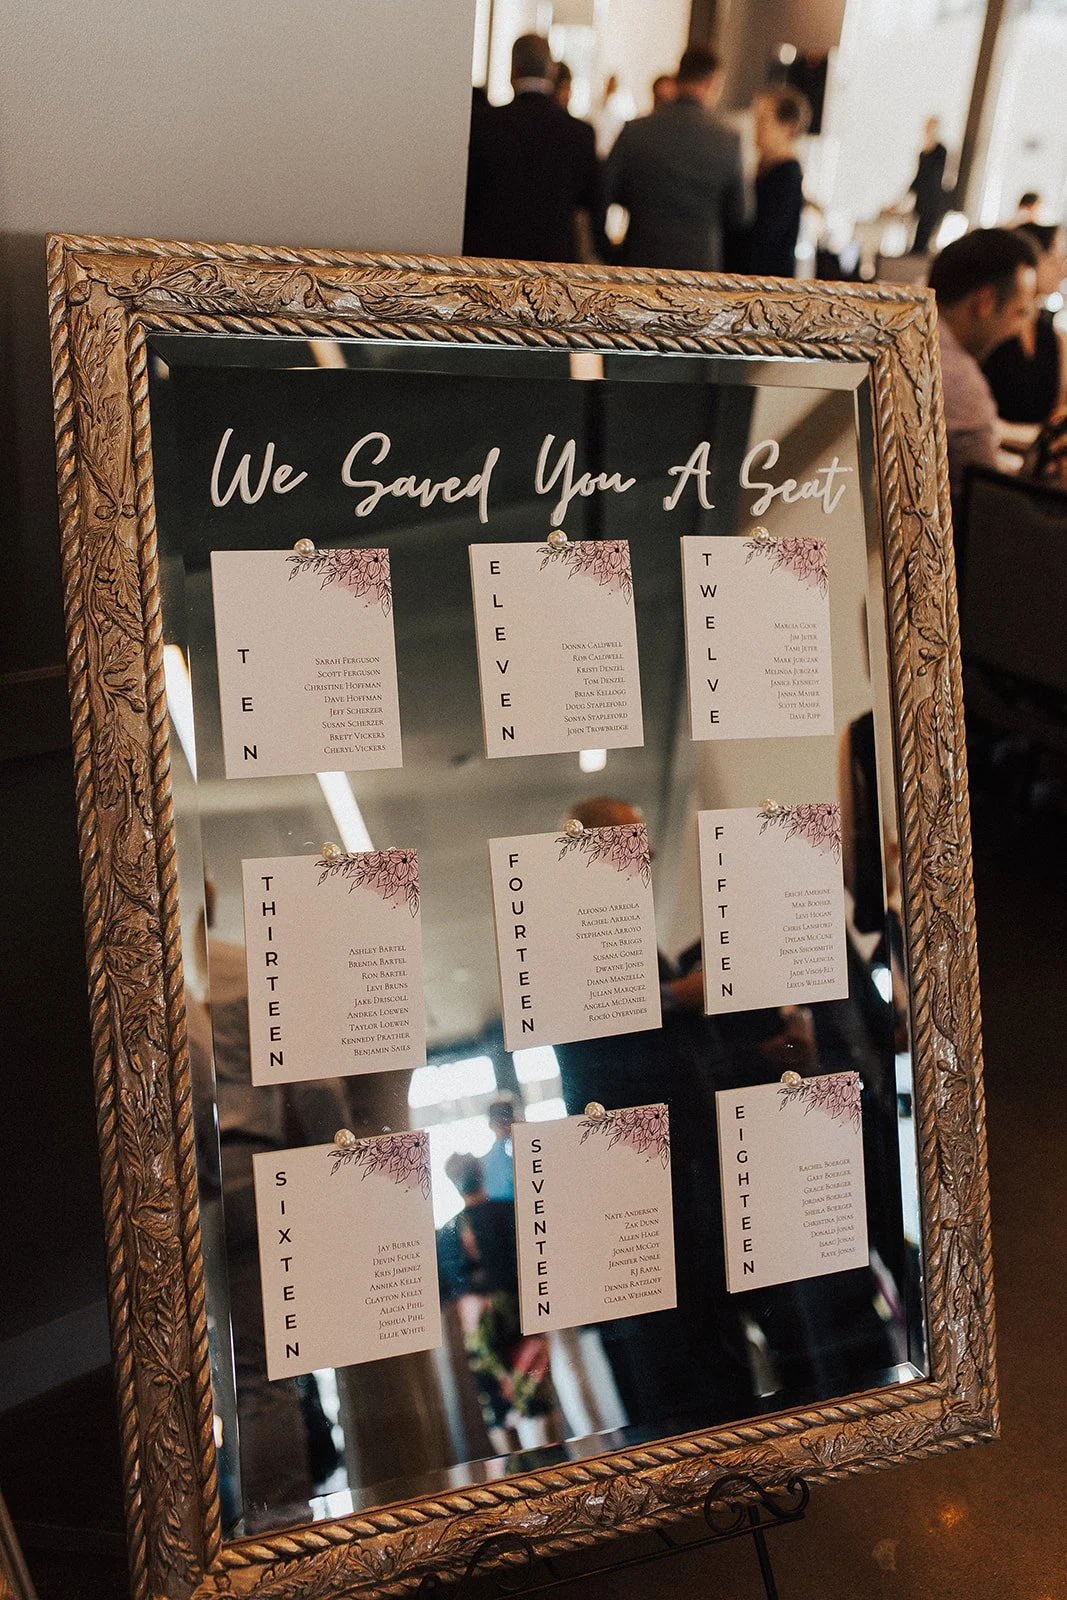 We Saved You A Seat
TEN
SARAH FERGUSON
SCOTT FERGUSON
CHRISTINE HOFFMAN
DAVE HOFFMAN
JEFF SCHERZER
SUSAN SCHERZER
BRETT VICKERS
CHERYL VICKERS
ELEVEN
DONNA CALDWELL
ROB CALDWELL
KRISTI DENZEL
TOM DENZEL
BRIAN KELLOGG
DOUG STAPLEFORD
SONYA STAPLEFORD
JOHN TROWBRIDGE
TWELVE
MARCIA COOK
JIM JETER
TAMI JETER
MARK JURCZAK
MELINDA JURCZAK
JANICE KENNEDY
JANNA MAHER
SCOTT MAHER
DAVE RIPP
THIRTEEN
ASHLEY BARTEL
BRENDA BARTEL
RON BARTEL
LEVI BRUNS
JAKE DRISCOLL
ANDREA LOEWEN
TAYLOR LOEWEN
KENNEDY PRATHER
BENJAMIN SAILS
FOURTEEN
ALFONSO ARREOLA
RACHEL ARREOLA
STEPHANIA ARROYO
TINA BRIGGS
SUSANA GOMEZ
DWAYNE JONES
DIANA MANZELLA
JULIAN MARQUEZ
ANGELA MCDANIEL
ROCÍO OYERVIDES
FIFTEEN
ERICH AMERINE
MAK BOOHER
LEVI HOGAN
CHRIS LANSFORD
DYLAN MCCUNE
JENNA SHOOSMITH
IVY VALENCIA
JADE VISOS-ELY
LEXUS WILLIAMS
SIXTEEN
JAY BURRUS
DEVIN FOULK
KRIS JIMENEZ
ANNIKA KELLY
CLAYTON KELLY
ALICIA PIHL
JOSHUA PIHL
ELLIE WHITE
SEVENTEEN
NATE ANDERSON
ZAK DUNN
ALLEN HAGE
JONAH MCCOY
JENNIFER NOBLE
RJ RAPAL
DENNIS RATZLOFF
CLARA WEHRMAN
EIGHTEEN
RACHEL BOERGER
GARY BOERGER
GRACE BOERGER
JORDAN BOERGER
SHEILA BOERGER
CHRISTINA JONAS
DONALD JONAS
ISAAC JONAS
RAYE JONAS